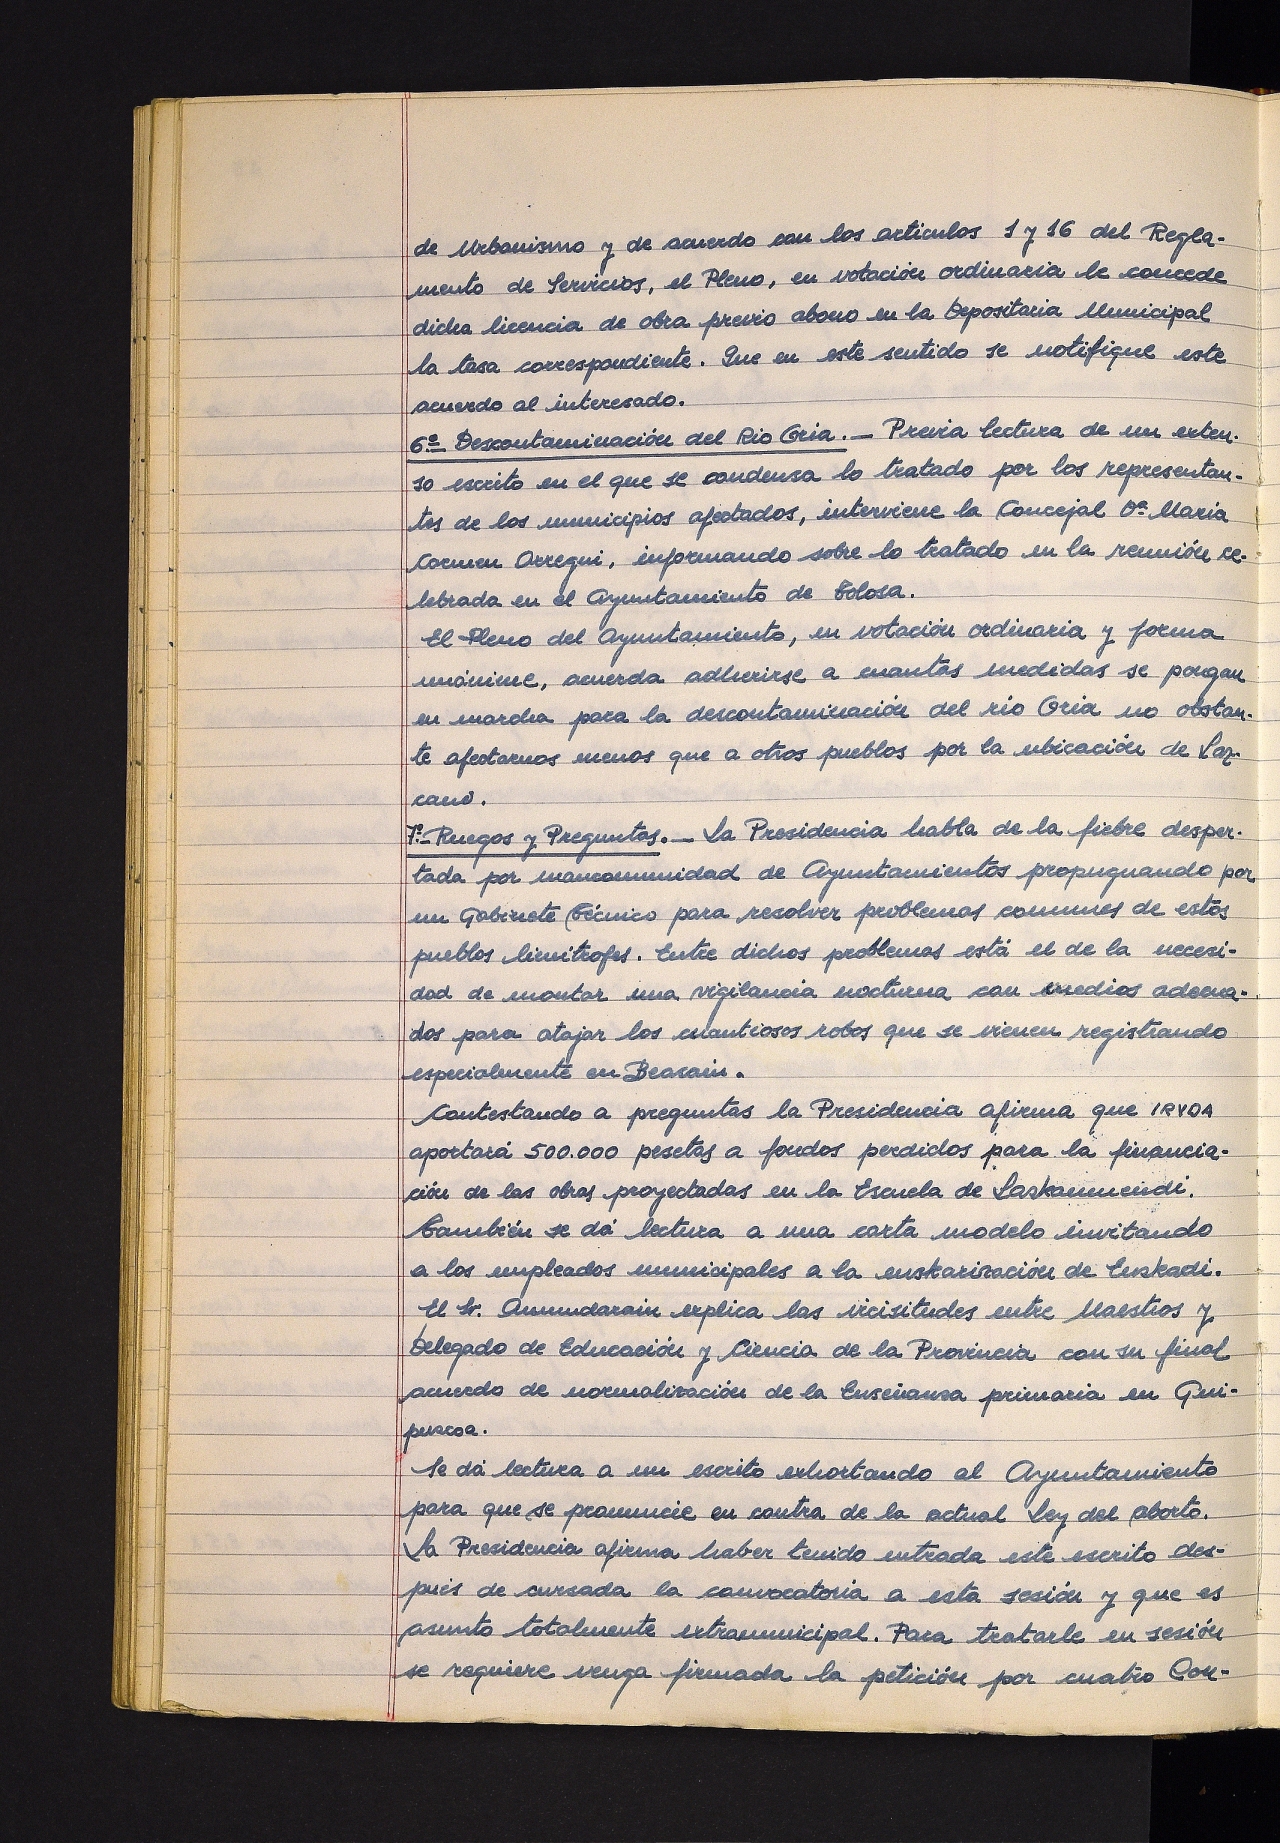 de Urbanismo y de acuerdo con los articulos 1 y 16 del Regla-
mento de Servicios, el Pleno, en votación ordinaria le concede
dicha licencia de obra previo abono en la Depositaria Municipal
la tasa correspondiente. Que en este sentido se notifique este
acuerdo al interesado.
6º Descontaminación del Rio Oria.- Previa lectura de un exten-
so escrito en el que se condensa lo tratado por los representan-
tes de los municipios afectados, interviene la Concejal Dª Maria
Carmen Arregui, informando sobre lo tratado en la reunión ce-
lebrada en el Ayuntamiento de Tolosa.
El Pleno del Ayuntamiento, en votación ordinaria y forma
unánime, acuerda adherirse a cuantas medidas se pongan
en marcha para la descontaminación del rio Oria no obstan-
te afectarnos menos que a otros pueblos por la ubicación de Laz-
cano.
7º- Ruegos y Preguntas.- La Presidencia habla de la fiebre desper-
tada por mancomunidad de Ayuntamientos propugnando por
un Gabinete Técnico para resolver problemas comunes de estos
pueblos limitrofes. Entre dichos problemas está el de la necesi-
dad de montar una vigilancia nocturna con medios adecua-
dos para atajar los cuantiosos robos que se vienen registrando
especialmente en Beasain.
Contestando a preguntas la Presidencia afirma que IRYDA
aportará 500.000 pesetas a fondos perdidos para la financia-
ción de las obras proyectadas en la Escuela de Lazkaumendi.
También se dá lectura a una carta modelo invitando
a los empleados municipales a la euskarización de Euskadi.
El Sr. Amundarain explica las vicisitudes entre Maestros y
Delegado de Educación y Ciencia de la Provincia con su final
acuerdo de normalización de la Enseñanza primaria en Gui-
puzcoa.
Se dá lectura a un escrito exhortando al Ayuntamiento
para que se pronuncie en contra de la actual Ley del aborto.
La Presidencia afirma haber tenido entrada este escrito des-
pués de cursada la convocatoria a esta sesión y que es
asunto totalmente extramunicipal. Para tratarle en sesión
se requiere venga firmada la petición por cuatro Con-